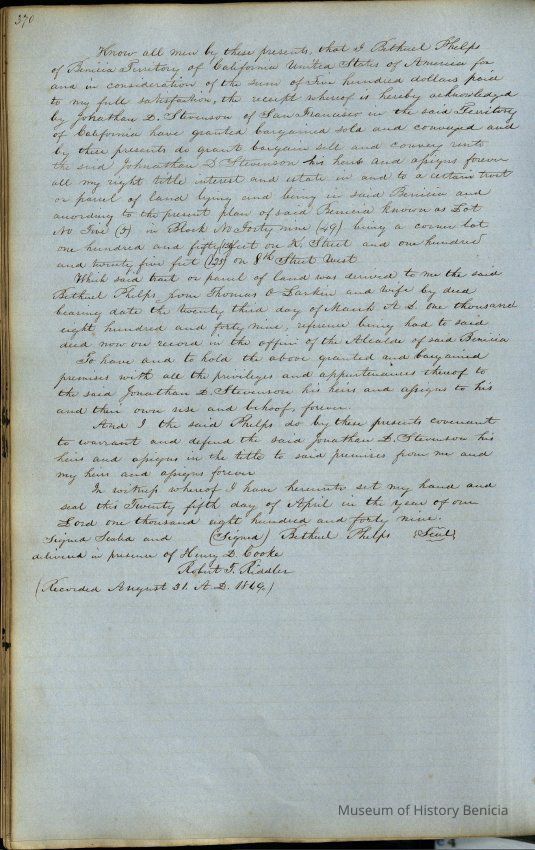 370
Know all men by these presents, that I Bethuel Phelps
of Benicia Territory of California United States of America for
and in consideration of the sum of Five hundred dollars paid
to my full satisfaction, the receipt whereof is hereby acknowledged
by Jonathan D. Stevenson of San Francisco in the said Territory
of California have granted bargained sold and conveyed and
by these presents do grant bargain sell and convey unto
the said Johnathan D Stevenson his heirs and assigns forever
all my right title interest and estate in and to a certain tract
or parcel of land lying and being in said Benicia and
according to the present plan of said Benicia known as Lot
No Five (5) in Block No Forty nine (49) being a corner lot
one hundred and fifty feet on K. Street and one hundred
and twenty five feet (125) on 8th Street West
Which said tract or parcel of land was derived to me the said
Bethuel Phelps from Thomas O Larkin and wife by deed
bearing date the twenty third day of March A D. one thousand
eight hundred and forty nine, reference being had to said
deed now on record in the office of the Alcalde of said Benicia
To have and to hold the above granted and bargained
premises with all the privileges and appurtenances thereof to
the said Jonathan D. Stevenson his heirs and assigns to his
and their own use and behoof, forever.
And I the said Phelps do by these presents covenant
to warrant and defend the said Jonathan D. Stevenson his
heirs and assigns in the title to said premises from me and
my heirs and assigns forever
In witness whereof I have hereunto set my hand and
seal this Twenty fifth day of April in the year of our
Lord one thousand eight hundred and forty nine.
Signed Sealed and (Signed) Bethuel Phelps Seal
delivered in presence of Henry D. Cooke
Robert F. Riddler
(Recorded August 31. A. D. 1849.)
Museum of History Benicia